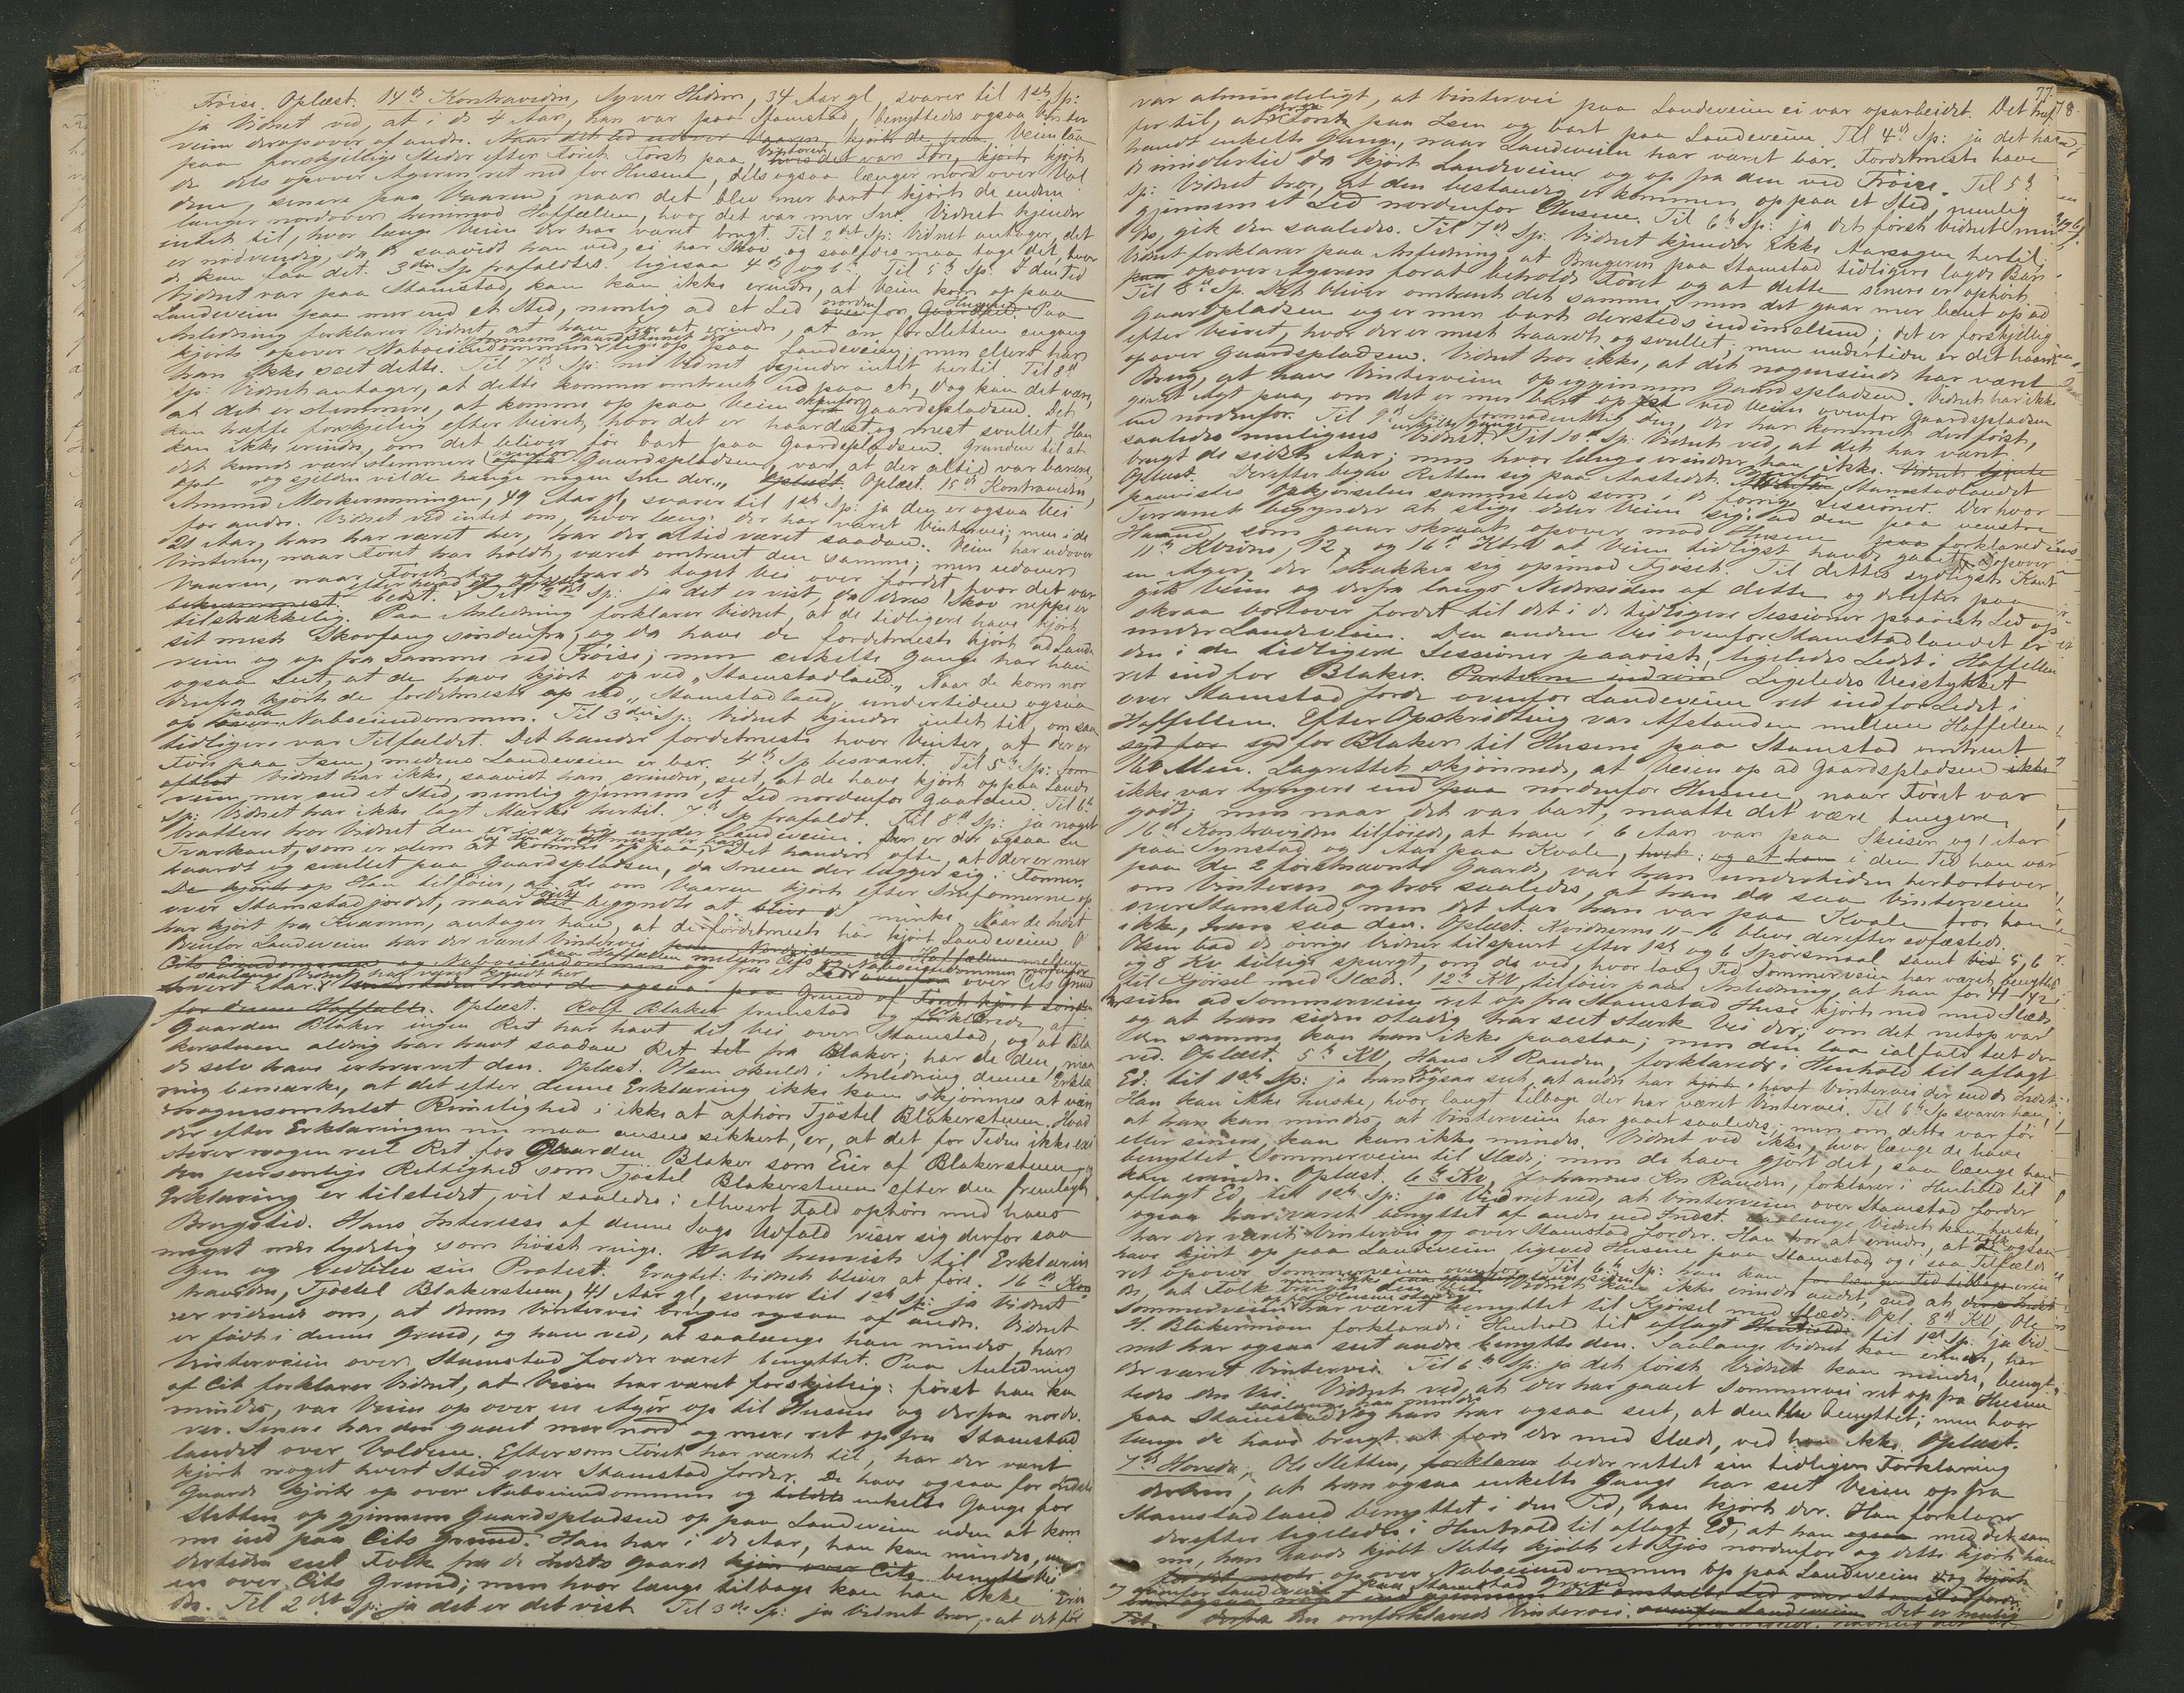 Fröise. Oplæst. 14de Kontravidne, Syver Hidem, 34 Aar gl, svarer til 1ste Sp:
ja Vidnet ved, at i de 4 Aar, han var paa Stamstad, benyttedes ogsaa Vinter
veien derop over af andre. Naar det led udover Vaaren, kjörte de paa Veien laa
paa forskjellige Steder efter Föret. Först paa Vinteren hvis det var Före, kjörte
de dels opover Ageren ret ned for Husene, dels ogsaa længer nord over Vol
dene, senere paa Vaaren, naar det blev mer bart kjörte de endnu
længer nordover henimod Haffællen, hvor det var mer Sne. Vidnet kjender
intet til, hvor længe Veien der har været brugt. Til 2det Sp: Vidnet antager, det
er nödvendig, da de saavidt han ved, ei har Skov og saaledes maa tage det, hvor
de kan faa det. 3die Sp frafaldtes. ligesaa 4de og 6te. Til 5te Sp. I den Tid
Vidnet var paa Stamstad, kan han ikke erindre, at Veien kom op paa
Landeveien paa mer end et Sted, nemlig ad et Led nordenfor Husene. Paa
Anledning forklarer Vidnet, at han tror at erindre, at en for Sletten engang
kjörte opover Naboeiendommen gjennem Gaardstunet der og op paa Landeveien; men ellers har
han ikke seet dette. Til 7de Sp: ne Vidnet kjender intet hertil. Til 8de
Sp: Vidnet antager, at dette kommer omtrent ud paa et, dog kan det være,
at det er slemmere, at komme op paa Veien ovenfor Gaardspladsen. Det
kan træffe forskjellig efter Veiret, hvor det er haardest og mest svullet. Han
kan ikke erindre, om det bliver för bart paa Gaardspladsen. Grunden til at
det kunde være slemmere ovenfor Gaardspladsen, var, at der altid var barere,
opt og sjelden vilde hænge nogen Sne der. Oplæst. 15de Kontravidne,
Amund Morkerimmingen, 49 Aar gl, svarer til 1ste Sp: ja den er ogsaa Vei
for andre. Vidnet ved intet om, hvor længe der har været Vintervei; men i de
21 Aar, han har været her, har der altid været saadan. Veien har udover
Vinteren, naar Föret har holdt, været omtrent den samme, men udover
Vaaren, naar Föret tog af, har de taget Vei over Jordet, hvor det var
bekvemmest bedst. Til 2det Sp: ja det er vist, da deres Skov neppe er
tilstrækkelig. Paa Anledning forklarer Vidnet, at de tidligere have kjört
sit meste Skovfang söndenfra, og da have de fordetmeste kjört ad Lande
veien og op fra samme ved Fröise; men enkelte Gange har han
ogsaa seet, at de have kjört op ved „Stamstadland". Naar de kom nor
denfra kjörte de fordetmeste op ved „Stamstadland", undertiden ogsaa
op paa Naboeiendommen. Til 3die Sp: Vidnet kjender intet til, om saa
tidligere var Tilfældet. Det hænder fordetmeste hver Vinter, at der er
Före paa Isen, medens Landeveien er bar. 4de Sp besvaret. Til 5te Sp: som
oftest Vidnet har ikke, saavidt han erindrer, seet, at de have kjört op paa Lande
veien mer end et Sted, nemlig gjennem et Led nordenfor Gaarden. Til 6te
Sp: Vidnet har ikke lagt Mærke hertil. 7de Sp frafaldt. Til 8de Sp: ja noget
brattere tror Vidnet den er under Landeveien. Der er der ogsaa en
Tværkant, som er slem at komme op paa; Det hænder ofte, at der er mer
haardt og svullet paa Gaardspladsen, da Sneen der lægger sig i Fonner.
De kjörte op Han tilföier, at de om Vaaren kjörte efter Snefonnerne op
over Stamstadjordet, naar Föret begyndte at minke. Naar de Indst
har kjört fra Kvarnen, antager han, at de fordetmeste har kjört Landeveien
Ovenfor Landeveien har der været Vintervei
saalænge Vidnet har været kjendt her
for denne Haffælle. Oplæst. Rolf Blaker fremstod og forklarede, at
Gaarden Blaker ingen Ret har havt til Vei over Stamstad, og at Bla
kersteuen aldrig har havt saadan Ret fra Blaker; har de den, maa
de selv have erhvervet den. Oplæst. Olsen skulde i Anledning denne Erklæ
ring bemærke, at det efter denne Erklæring ikke kan skjönnes at være
nogensomhelst Rimelighed i ikke at afhöre Tjöstel Blakersteuen. Hvad
der efter Erklæringen nu maa ansees sikkert, er, at det for Tiden ikke exi
sterer nogen reel Ret for Gaarden Blaker som Eier af Blakersteuen og
den personlige Rettighed som Tjöstel Blakersteuen efter den fremlagte
Erklæring er tilstedet, vil saaledes i Ethvert Fald ophöre med hans
Brugstid. Hans Interesse af denne Sags Udfald viser sig derfor saa
meget mer tydelig som höist ringe. Hals henviste til Erklærin
gen og vedblev sin Protest. Eragtet: Vidnet bliver at före. 16de Kon
travidne, Tjöstel Blakersteuen, 41 Aar gl, svarer til 1ste Sp: ja Vidnet
er vidende om, at denne Vintervei bruges ogsaa af andre. Vidnet
er födt i denne Grend, og han ved, at saalænge han mindes, har
Vinterveien over Stamstad Jorder været benyttet. Paa Anledning
af Cit forklarer Vidnet, at Veien har været forskjellig: först han kan
mindes, var Veien op over en Ager op til Husene og derfra nordo
ver. Senere har den gaaet mer nord og mere ret op fra Stamstad
landet over Voldene. Eftersom Föret har været til, har der været
kjört noget hvert Sted over Stamstad Jorder. De have ogsaa for Indstte
Gaarde kjört op over Naboeiendommen og enkelte Gange for
Sletten op gjennem Gaardspladsen op paa Landeveien uden at kom
me ind paa Cits Grund. Han har i de Aar, han kan mindes, un
dertiden seet Folk fra de Indsts Gaarde benytte Vei
en over Cits Grund; men hvor længe tilbage kan han ikke Erin
dre. Til 2det Sp: ja det er det vist. Til 3die Sp: ja Vidnet tror, at det för
77.
78.
var almindeligt, at Vintervei paa Landeveien ei var oparbeidet. Det træf
fer til, at der er Före paa Isen og bart paa Landeveien. Til 4de Sp: ja det har
hændt enkelte Gange, naar Landeveien har været bar. Fordetmeste have
de imidlertid da kjört Landeveien og op fra den ved Fröise. Til 5te
Sp: Vidnet tror, at den bestandig er kommen op paa et Sted, nemlig
gjennem et Led nordenfor Husene. Til 6te Sp: ja det först Vidnet min
des, gik den saaledes. Til 7de Sp: Vidnet kjender ikke Aarsagen hertil.
Vidnet forklarer paa Anledning, at Brugeren paa Stamstad tidligere lagde Bar
paa opover Ageren forat beholde Föret og at dette senere er ophört.
Til 8de Sp. Det bliver omtrent det samme, men det gaar mer beent op ad
Gaardspladsen og er mer bart dersteds indimellem; det er forskjellig
efter Veiret, hvor der er mest haardt og svullet; men undertiden er det haardt
opover Gaardspladsen. Vidnet tror ikke, at det nogensinde har været
Brug, at have Vinterveien op igjennem Gaardspladsen. Vidnet har ikke
givet Agt paa, om det er mer bart op ved Veien ovenfor Gaardspladsen
end nordenfor. Til 9de Sp: formodentlig den, der har kommet der först,
saaledes muligens enkelte Gange Vidnet. Til 10de Sp: Vidnet ved, at det har været
brugt de sidste Aar; men hvor længe erindrer han ikke.
Oplæst. Derefter begav Retten sig paa Aastedet. Stamstadlandet
paavistes Opkjörselen sammesteds som i de forrige Sessioner. Der hvor
Terrænet begynder at stige deler Veien sig: ad den paa venstre
Haand, som gaar skraat opover mod Husene forklarede
11te Kvidne, 12 og 16de Ktrv at Veien tidligst havde gaaet opover
en Ager, der strækker sig opimod Fjöset. Til dettes sydligste Kant
gik Veien og derfra langs Nedersiden af dette og derefter paa
skraa bortover Jordet til det i de tidligere Sessioner paaviste Led op
under Landeveien. Den anden Vei ovenfor Stamstadlandet er
den i de tidligere Sessioner paaviste, ligeledes Ledet i Haffellen
ret indfor Blaker. Ligeledes Veistykket
over Stamstad Jorde ovenfor Landeveien ret indfor Ledet i
Haffellen. Efter Opskridtning var Afstanden mellem Haffellen
syd for Blaker til Husene paa Stamstad omtrent
160 Alen. Lagrettet skjönnede, at Veien op ad Gaardspladsen ikke
ikke var tyngere end paa nordenfor Husene, naar Föret var
godt; men naar det var bart, maatte det være tungere.
16de Kontravidne tilföiede, at han i 6 Aar var paa Skeisen og 1 Aar
paa Synstad og 1 Aar paa Kvale, i den Tid han var
paa de 2 förstnævnte Gaarde, var han undertiden herbortover
om Vinteren, og tror saaledes, at han da saa Vinterveien
over Stamstad; men det Aar han var paa Kvale tror han
ikke, han saa den. Oplæst. Kvidnerne 11-16 bleve derefter edfæstede.
Olsen bad de övrige Vidner tilspurt efter 1ste og 6 Spörsmaal samt 5, 6
og 8 Kv tillige spurgt, om de ved, hvor lang Tid Sommerveien har været benyttet
til Kjörsel med Slæde. 12te KV tilföier paa Anledning, at han for 41-42
siden ad Sommerveien ret op fra Stamstad Huse kjörte ned med Slæde,
og at han siden stadig har seet stærk Vei der; om det netop var
den samme kan han ikke paastaa; men den laa ialfald tæt der
ved. Oplæst. 5te KV, Hans A Randen, forklarede i Henhold til aflagt
Ed: til 1ste Sp: ja han har ogsaa seet, at andre har havt Vintervei der end de Indst.
Han kan ikke huske, hvor langt tilbage der har været Vintervei. Til 6te Sp svarer han,
at han kan mindes, at Vinterveien har gaaet saaledes; men om dette var för
eller senere kan han ikke mindes. Vidnet ved ikke, hvor længe de have
benyttet Sommerveien til Slæde; men de have gjört det, saa længe han
kan erindre. Oplæst. 6te Kv, Johannes Krs Randen, forklarer i Henhold til
aflagt Ed til 1ste Sp: ja Vidnet ved, at Vinterveien over Stamstad Jorder
ogsaa har været benyttet af andre end Indst. Saalænge Vidnet kan huske,
har der været Vintervei over Stamstad Jorder. Han tror at erindre, at Folk ogsaa
have kjört op paa Landeveien ligeved Husene paa Stamstad, og i saa Tilfælde
ret opover Sommerveien ovenfor. Til 6te Sp: han kan
dre, at Folk Vidnet kan ikke erindre andet, end at
Sommerveien har været benyttet til Kjörsel med Slæde. Opl. 8de KV, Ole
H. Blakermoen forklarede i Henhold til aflagt til 1ste Sp: ja Vid
net har ogsaa seet andre benytte den. Saalænge Vidnet kan erindre, har
der været Vintervei. Til 6te Sp: ja det först Vidnet kan mindes, benyt
tedes den Vei. Vidnet ved, at der har gaaet Sommervei ret op fra Husene
paa Stamstad saalænge han mindes og han har ogsaa seet, at den blev benyttet; men hvor
længe de have brugt at fare der med Slæde, ved han ikke. Oplæst.
7de Hovedv, Ole Sletten, beder rettet sin tidligere Forklaring
derhen, at han ogsaa enkelte Gange har seet Veien op fra
Stamstadland benyttet i den Tid, han kjörte der. Han forklarer
derefter ligeledes i Henhold til aflagt Ed, at han med det sam
me, han havde kjöbt Sletta kjöbte et Fjös nordenfor og dette kjörte han
opover Naboeiendommen op paa Landeveien
ovenfor Landeveien paa Stamstad Grund
derfra den omforklarede Vintervei. Det er